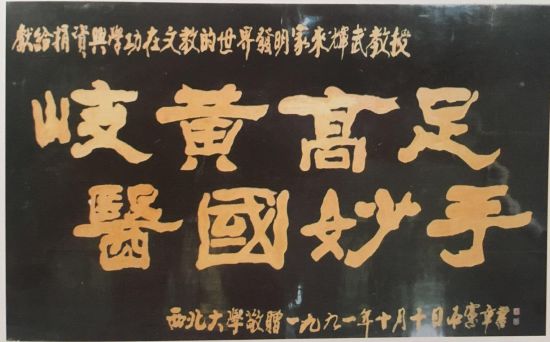 獻給捐資興學功在文教的世界發明家來輝武教授
岐黃高足
醫國妙手
西北大學敬贈一九九一年十月十日吳憲章書